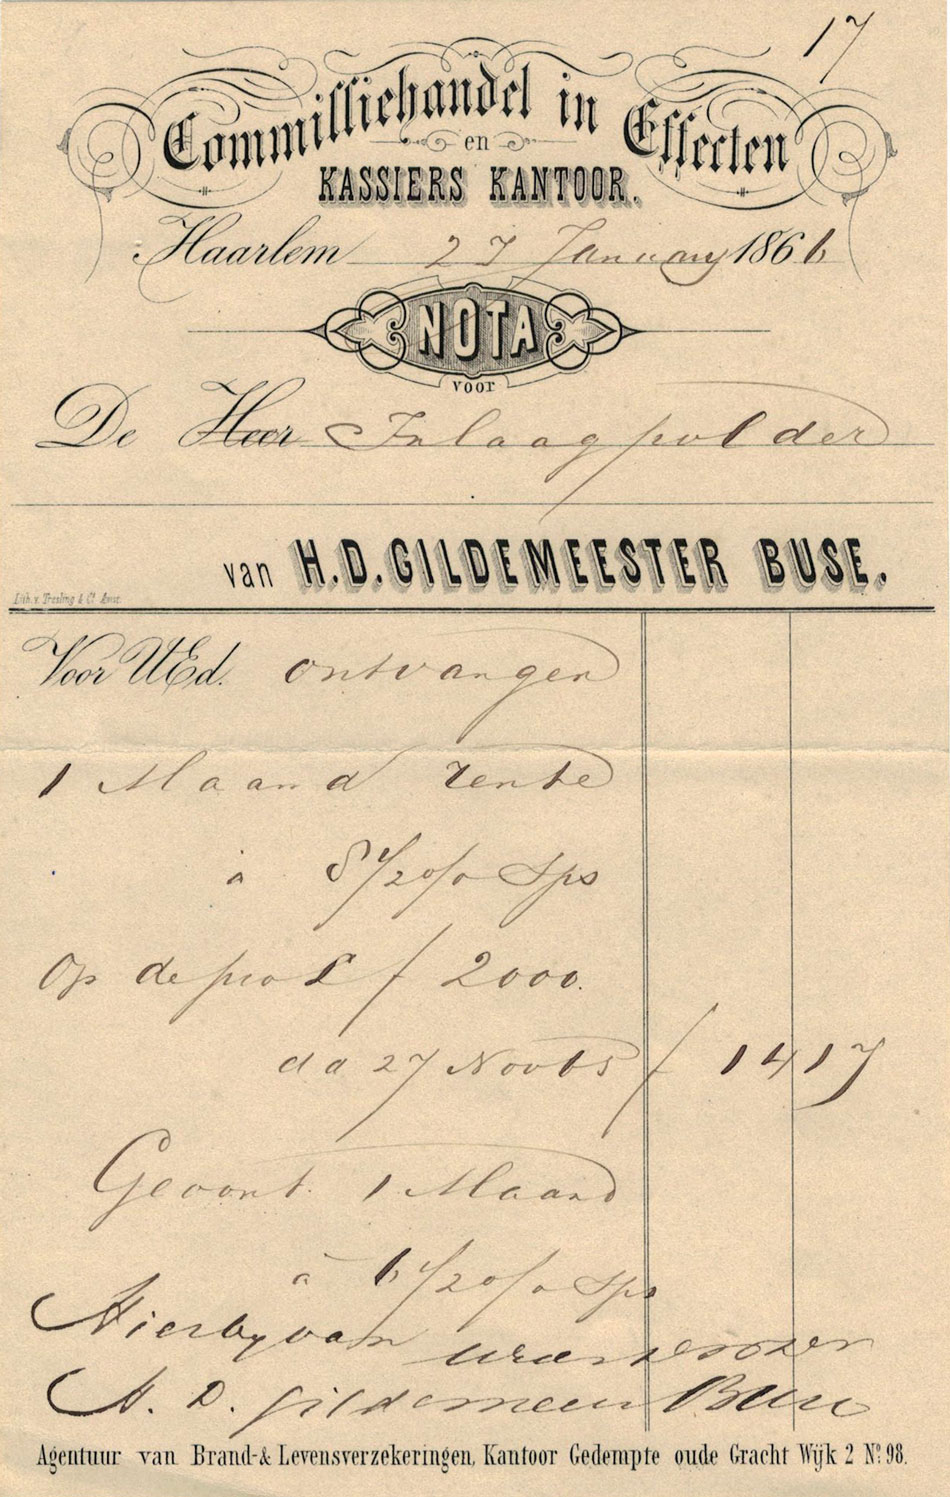 17
Commissiehandel in Effecten
en
KASSIERS KANTOOR.
Haarlem 27 January 1866
NOTA
voor
De Heer Inlaagpolder
van H.D. GILDEMEESTER BUSE.
Lith. v. Tresling & Cº Amst.
Voor UEd. ontvangen
1 Maand rente
à 8 1/2 o/o Sps
Op depot f 2000.
da 27 Novbs f 14 17
Gecont. 1 Maand
à 6 1/2 o/o Sps
Hierbyvan
H. D. Gildemeester Buse
Agentuur van Brand- & Levensverzekeringen, Kantoor Gedempte oude Gracht Wijk 2 Nº 98.